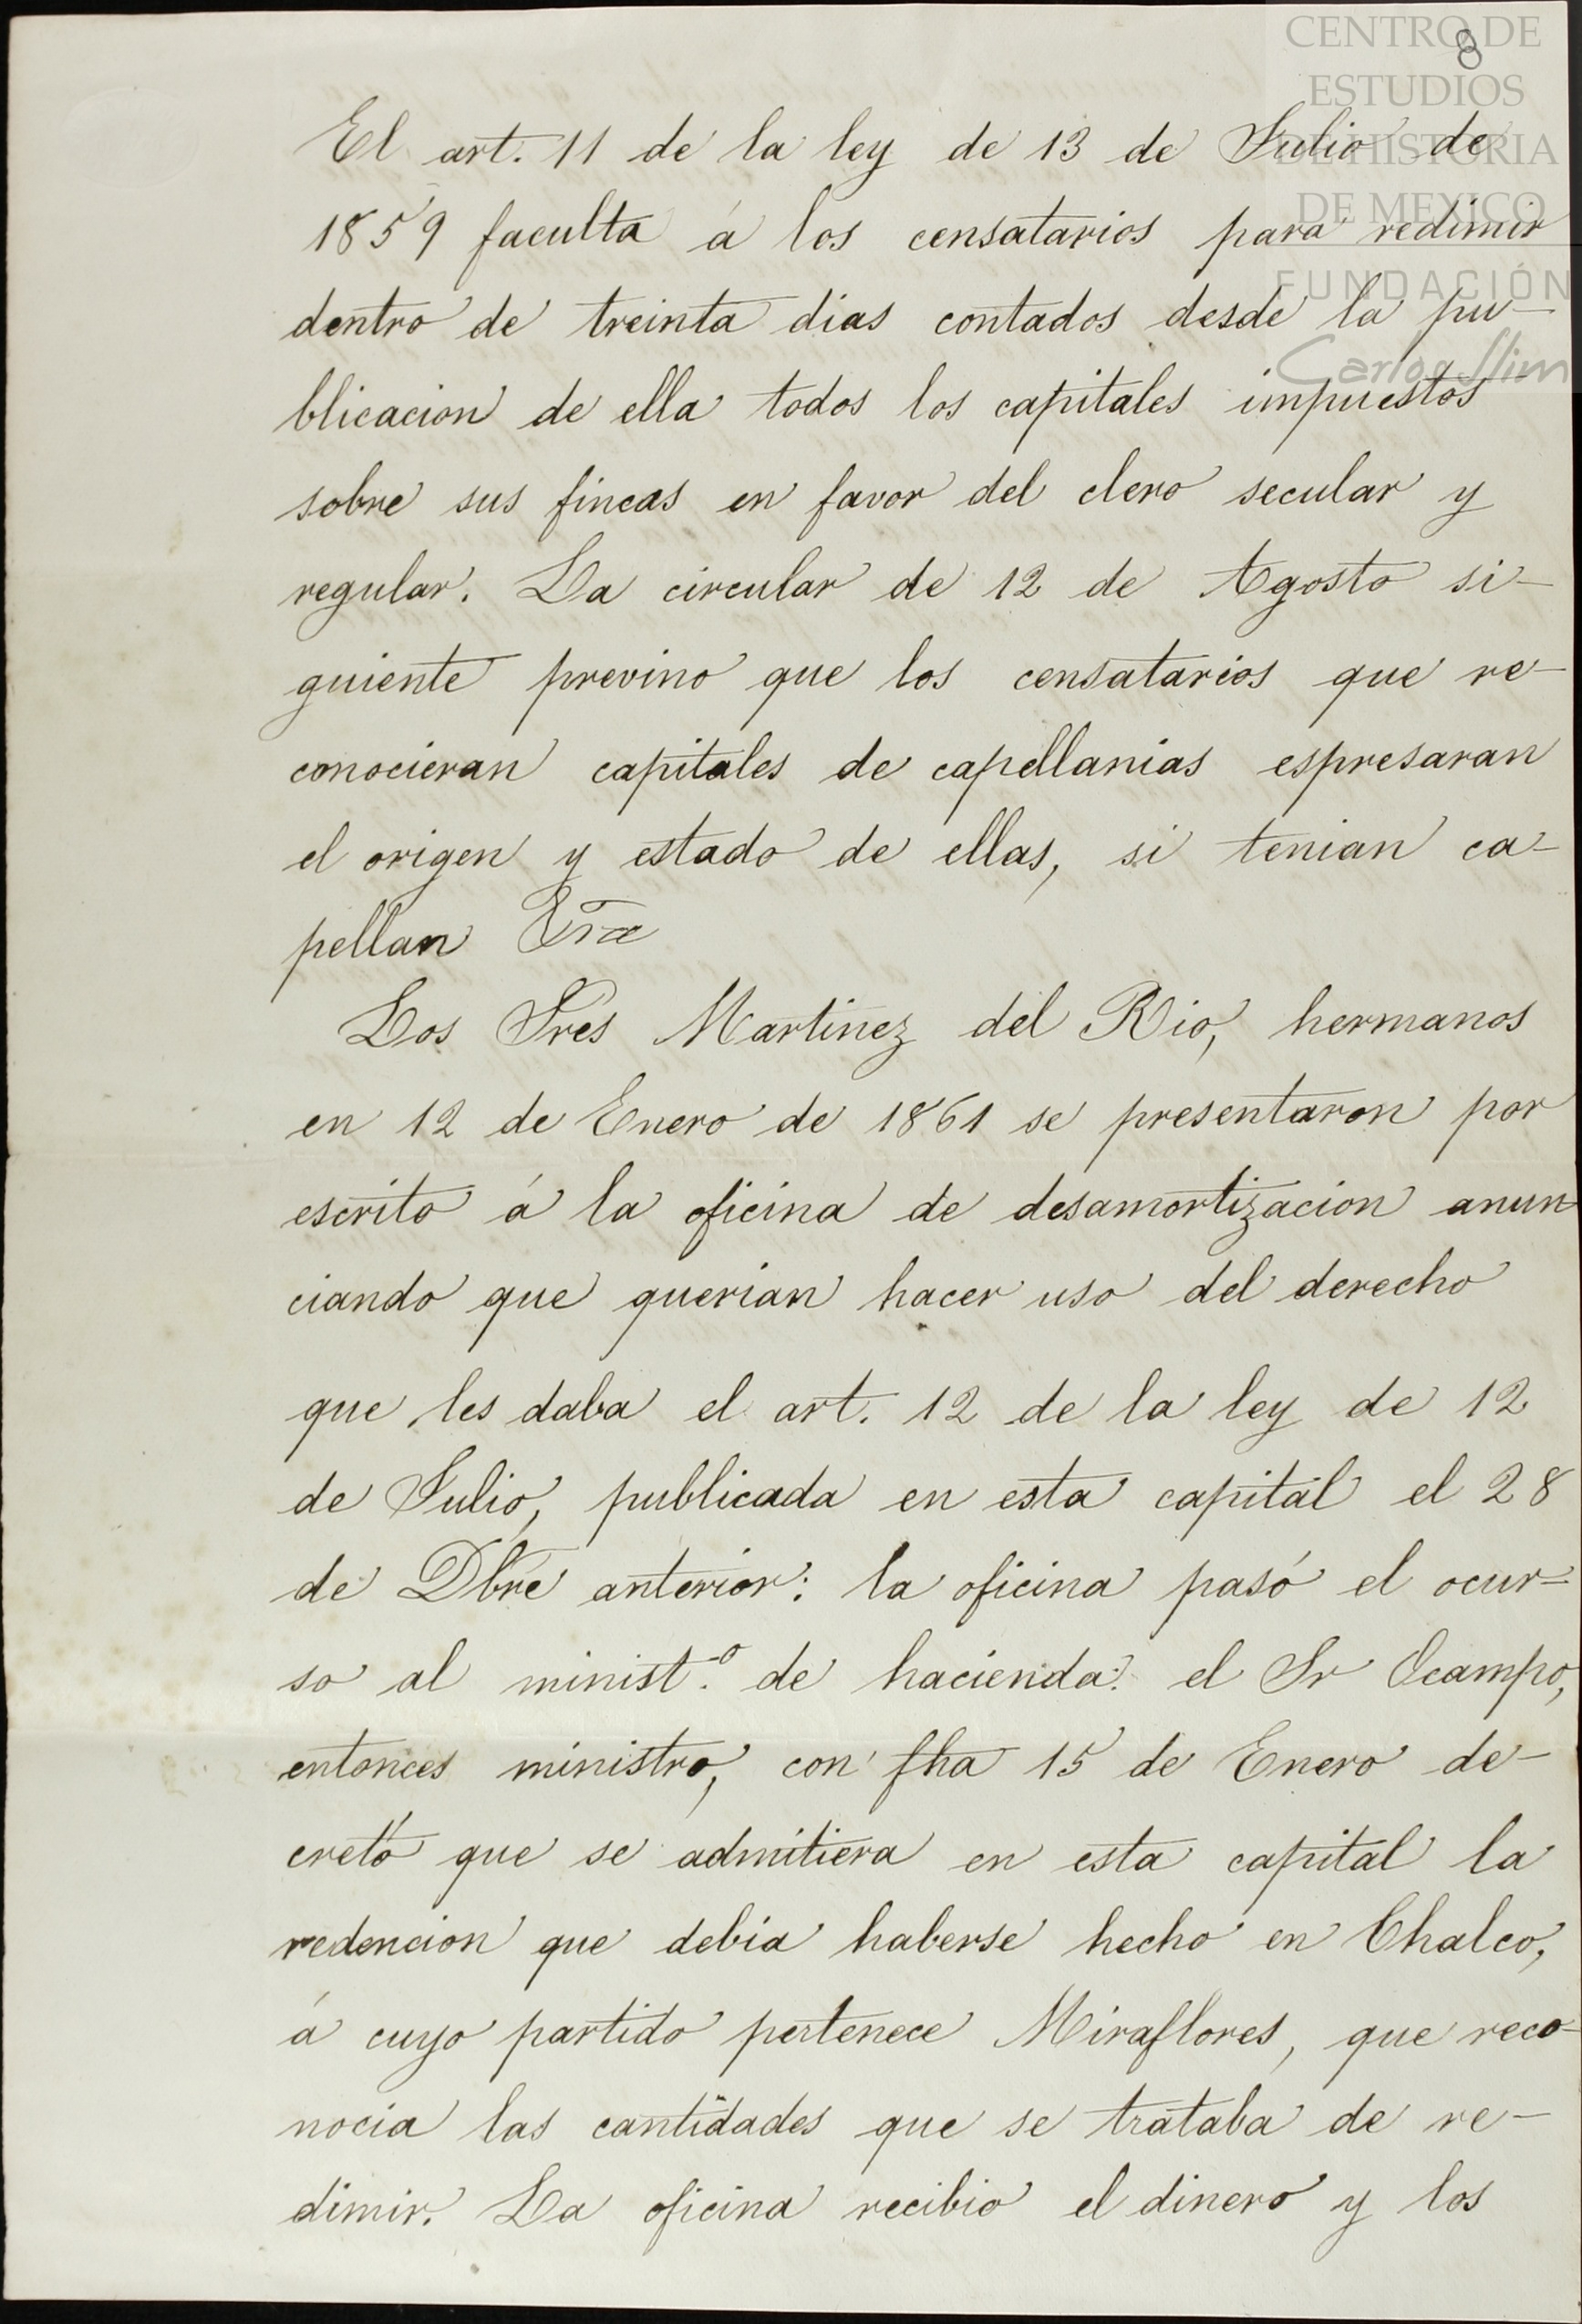 CENTRO DE
ESTUDIOS
DE HISTORIA
DE MEXICO
FUNDACIÓN
Carlos Slim
8
El art. 11 de la ley de 13 de Julio de
1859 faculta á los censatarios para redimir
dentro de treinta dias contados desde la pu-
blicacion de ella todos los capitales impuestos
sobre sus fincas en favor del clero secular y
regular. La circular de 12 de Agosto si-
guiente previno que los censatarios que re-
conocieran capitales de capellanias espresaran
el origen y estado de ellas, si tenian ca-
pellan
Los Sres Martinez del Rio, hermanos
en 12 de Enero de 1861 se presentaron por
escrito á la oficina de desamortizacion anun
ciando que querian hacer uso del derecho
que les daba el art. 12 de la ley de 12
de Julio, publicada en esta capital el 28
de Dbre anterior: la oficina pasó el ocur=
so al minist.º de hacienda: el Sr Ocampo,
entonces ministro, con fha 15 de Enero de-
cretó que se admitiera en esta capital la
redencion que debia haberse hecho en Chalco,
á cuyo partido pertenece Miraflores, que reco-
nocia las cantidades que se trataba de re-
dimir. La oficina recibio el dinero y los